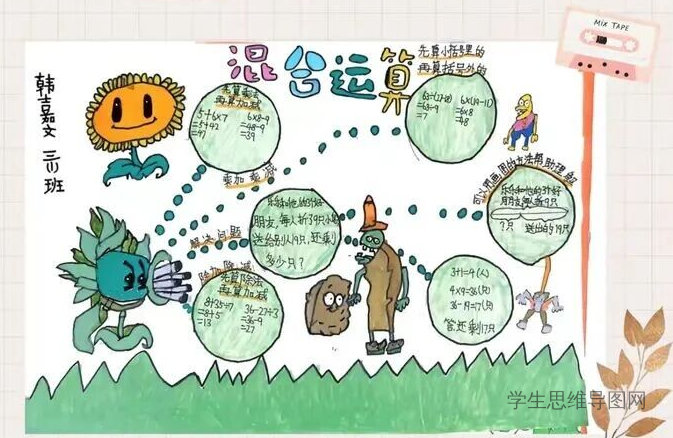 MIX TAPE
混合运算
韩嘉文
班
先算乘法
再算加减
5+6×7
=5+42
=47
6×8-9
=48-9
=39
乘加乘减
先算小括号里的
再算括号外的
=63÷9
=7
6×(19-11)
=6×8
=48
解决问题
乐乐和他的3个好
朋友,每人折了9只小
送给别人19只,还剩
多少只?
可以用画图的方法帮助理解
乐乐和他的3个好
朋友每人折9只
?只
送出的19只
除加除减
先算除法
再算加减
8+35÷7
=8+5
=13
36-27÷3
=36-9
=27
3+1=4(人)
4×9=36(只)
36-19=17(只)
答还剩17只
学生思维导图网